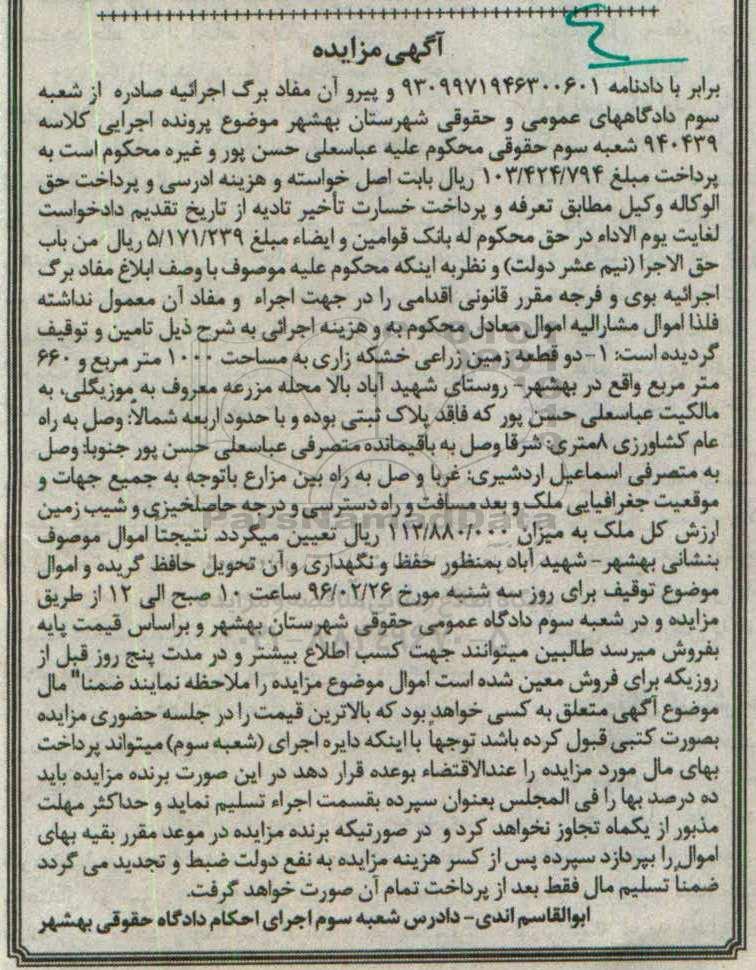 آگهی مزایده
برابر با دادنامه ۹۳۰۹۹۷۱۹۴۶۳۰۰۶۰۱ و پیرو آن مفاد برگ اجرائیه صادره از شعبه
سوم دادگاههای عمومی و حقوقی شهرستان بهشهر موضوع پرونده اجرایی کلاسه
۹۴۰۴۳۹ شعبه سوم حقوقی محکوم علیه عباسعلی حسن پور و غیره محکوم است به
پرداخت مبلغ ۱۰۳/۴۲۴/۷۹۴ ریال بابت اصل خواسته و هزینه ادرسی و پرداخت حق
الوکاله وکیل مطابق تعرفه و پرداخت خسارت تأخیر تادیه از تاریخ تقدیم دادخواست
لغایت یوم الاداء در حق محکوم له بانک قوامین و ایضاء مبلغ ۵/۱۷۱/۲۳۹ ریال من باب
حق الاجرا (نیم عشر دولت) و نظر به اینکه محکوم علیه موصوف با وصف ابلاغ مفاد برگ
اجرائیه بوی و فرجه مقرر قانونی اقدامی را در جهت اجراء و مفاد آن معمول نداشته
فلذا اموال مشارالیه اموال معادل محکوم به و هزینه اجرائی به شرح ذیل تامین و توقیف
گردیده است: ۱-دو قطعه زمین زراعی خشکه زاری به مساحت ۱۰۰۰ متر مربع و ۶۶۰
متر مربع واقع در بهشهر- روستای شهید آباد بالا محله مزرعه معروف به موزیگلی، به
مالکیت عباسعلی حسن پور که فاقد پلاک ثبتی بوده و با حدود اربعه شمالاً: وصل به راه
عام کشاورزی ۸متری: شرقا وصل به باقیمانده متصرفی عباسعلی حسن پور جنوبا: وصل
به متصرفی اسماعیل اردشیری: غربا و صل به راه بین مزارع باتوجه به جمیع جهات و
موقعیت جغرافیایی ملک و بعد مسافت و راه دسترسی و درجه حاصلخیزی و شیب زمین
ارزش کل ملک به میزان ۱۱۲/۸۸۰/۰۰۰ ریال تعیین میگردد. نتیجتا اموال موصوف
بنشانی بهشهر- شهید آباد بمنظور حفظ و نگهداری و آن تحویل حافظ گریده و اموال
موضوع توقیف برای روز سه شنبه مورخ ۹۶/۰۲/۲۶ ساعت ۱۰ صبح الی ۱۲ از طریق
مزایده و در شعبه سوم دادگاه عمومی حقوقی شهرستان بهشهر و براساس قیمت پایه
بفروش میرسد طالبین میتوانند جهت کسب اطلاع بیشتر و در مدت پنج روز قبل از
روزیکه برای فروش معین شده است اموال موضوع مزایده را ملاحظه نمایند ضمنا" مال
موضوع آگهی متعلق به کسی خواهد بود که بالاترین قیمت را در جلسه حضوری مزایده
بصورت کتبی قبول کرده باشد توجهاً با اینکه دایره اجرای (شعبه سوم) میتواند پرداخت
بهای مال مورد مزایده را عندالاقتضاء بوعده قرار دهد در این صورت برنده مزایده باید
ده درصد بها را فی المجلس بعنوان سپرده بقسمت اجراء تسلیم نماید و حداکثر مهلت
مذبور از یکماه تجاوز نخواهد کرد و در صورتیکه برنده مزایده در موعد مقرر بقیه بهای
اموال را بپردازد سپرده پس از کسر هزینه مزایده به نفع دولت ضبط و تجدید می گردد
ضمناً تسلیم مال فقط بعد از پرداخت تمام آن صورت خواهد گرفت.
ابوالقاسم اندی- دادرس شعبه سوم اجرای احکام دادگاه حقوقی بهشهر
ParsNamadData